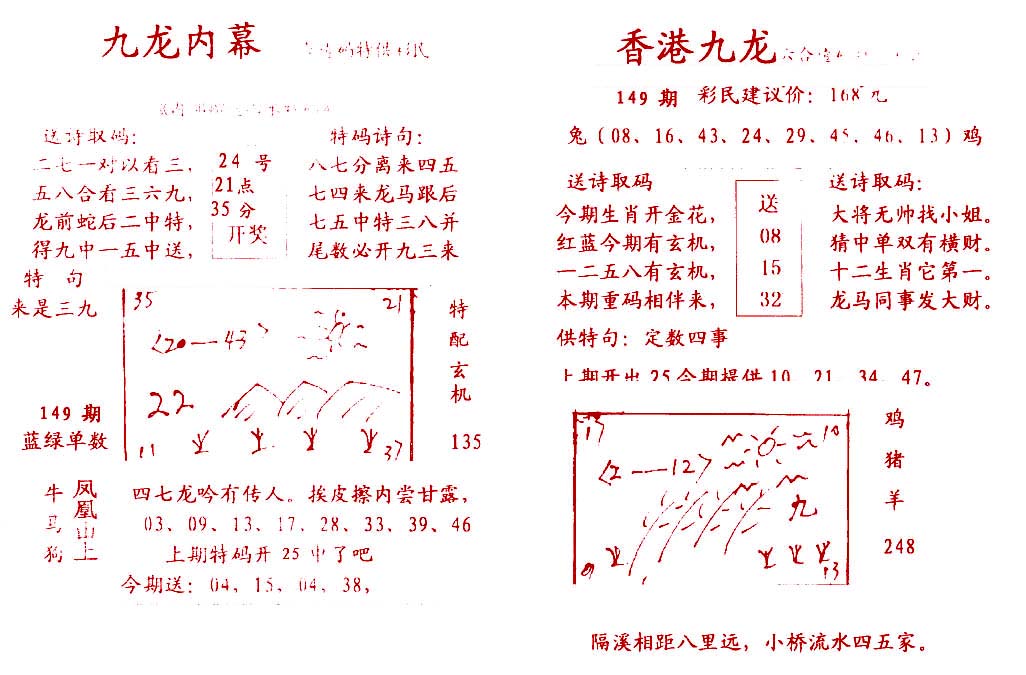 九龙内幕
码特供彩民
送诗取码：
二七一对以看三，
五八合看三六九，
龙前蛇后二中特，
得九中一五中送，
特 句
来是三九
24 号
21点
35 分
开奖
特码诗句：
八七分离来四五
七四来龙马跟后
七五中特三八并
尾数必开九三来
35
21
20—43
22
11
37
特
配
玄
机
135
149 期
蓝绿单数
牛
马
狗
凤凰山上
四七龙吟有传人。挨皮擦内尝甘露，
03、09、13、17、28、33、39、46
上期特码开 25 中了吧
今期送：04，15，04，38，
香港九龙
六合
149 期 彩民建议价：168元
兔（08、16、43、24、29、45、46、13）鸡
送诗取码
今期生肖开金花，
红蓝今期有玄机，
一二五八有玄机，
本期重码相伴来，
送
08
15
32
送诗取码：
大将无帅找小姐。
猜中单双有横财。
十二生肖它第一。
龙马同事发大财。
供特句：定数四事
上期开出 25 今期提供 10、21、34、47。
17
10
2—12
九
9
13
鸡
猪
羊
248
隔溪相距八里远，小桥流水四五家。